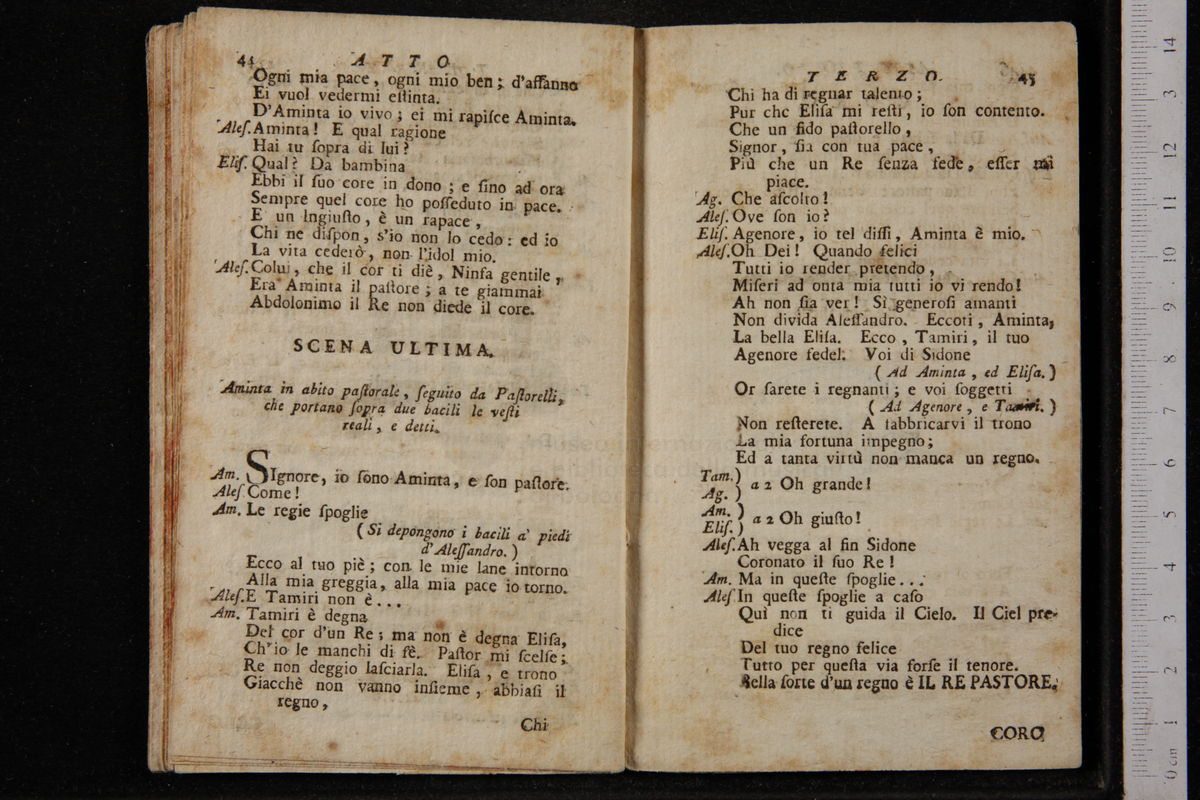 44 ATTO
Ogni mia pace, ogni mio ben; d'affanno
Ei vuol vedermi eſtinta.
D'Aminta io vivo; ei mi rapiſce Aminta.
Aleſ. Aminta! E qual ragione
Hai tu ſopra di lui?
Eliſ. Qual? Da bambina
Ebbi il ſuo core in dono; e fino ad ora
Sempre quel core ho poſſeduto in pace.
E un Ingiuſto, è un rapace,
Chi ne diſpon, s'io non lo cedo: ed io
La vita cederò, non l'idol mio.
Aleſ. Colui, che il cor ti diè, Ninfa gentile,
Era Aminta il paſtore; a te giammai
Abdolonimo il Re non diede il core.
SCENA ULTIMA.
Aminta in abito paſtorale, ſeguito da Paſtorelli,
che portano ſopra due bacili le veſti
reali, e detti.
Am. SIgnore, io ſono Aminta, e ſon paſtore.
Aleſ Come!
Am. Le regie ſpoglie
(Si depongono i bacili a' piedi
d'Aleſſandro.)
Ecco al tuo piè; con le mie lane intorno
Alla mia greggia, alla mia pace io torno.
Aleſ. E Tamiri non è...
Am. Tamiri è degna
Del cor d'un Re; ma non è degna Eliſa,
Ch'io le manchi di fè. Paſtor mi ſcelſe;
Re non deggio laſciarla. Eliſa, e trono
Giacchè non vanno inſieme, abbiaſi il
regno,
Chi
TERZO. 45
Chi ha di regnar talento;
Pur che Eliſa mi reſti, io ſon contento.
Che un fido paſtorello,
Signor, ſia con tua pace,
Più che un Re ſenza fede, eſſer mi
piace.
Ag. Che aſcolto!
Aleſ. Ove ſon io?
Eliſ. Agenore, io tel diſſi, Aminta è mio.
Aleſ. Oh Dei! Quando felici
Tutti io render pretendo,
Miſeri ad onta mia tutti io vi rendo!
Ah non ſia ver! Sì generoſi amanti
Non divida Aleſſandro. Eccoti, Aminta,
La bella Eliſa. Ecco, Tamiri, il tuo
Agenore fedel. Voi di Sidone
(Ad Aminta, ed Eliſa.)
Or ſarete i regnanti; e voi ſoggetti
(Ad Agenore, e Tamiri.)
Non reſterete. A fabbricarvi il trono
La mia fortuna impegno;
Ed a tanta virtù non manca un regno.
Tam.)
Ag. ) a 2 Oh grande!
Am. )
Eliſ. ) a 2 Oh giuſto!
Aleſ. Ah vegga al fin Sidone
Coronato il ſuo Re!
Am. Ma in queſte ſpoglie...
Aleſ In queſte ſpoglie a caſo
Quì non ti guida il Cielo. Il Ciel pre-
dice
Del tuo regno felice
Tutto per queſta via forſe il tenore.
Bella ſorte d'un regno è IL RE PASTORE.
CORO